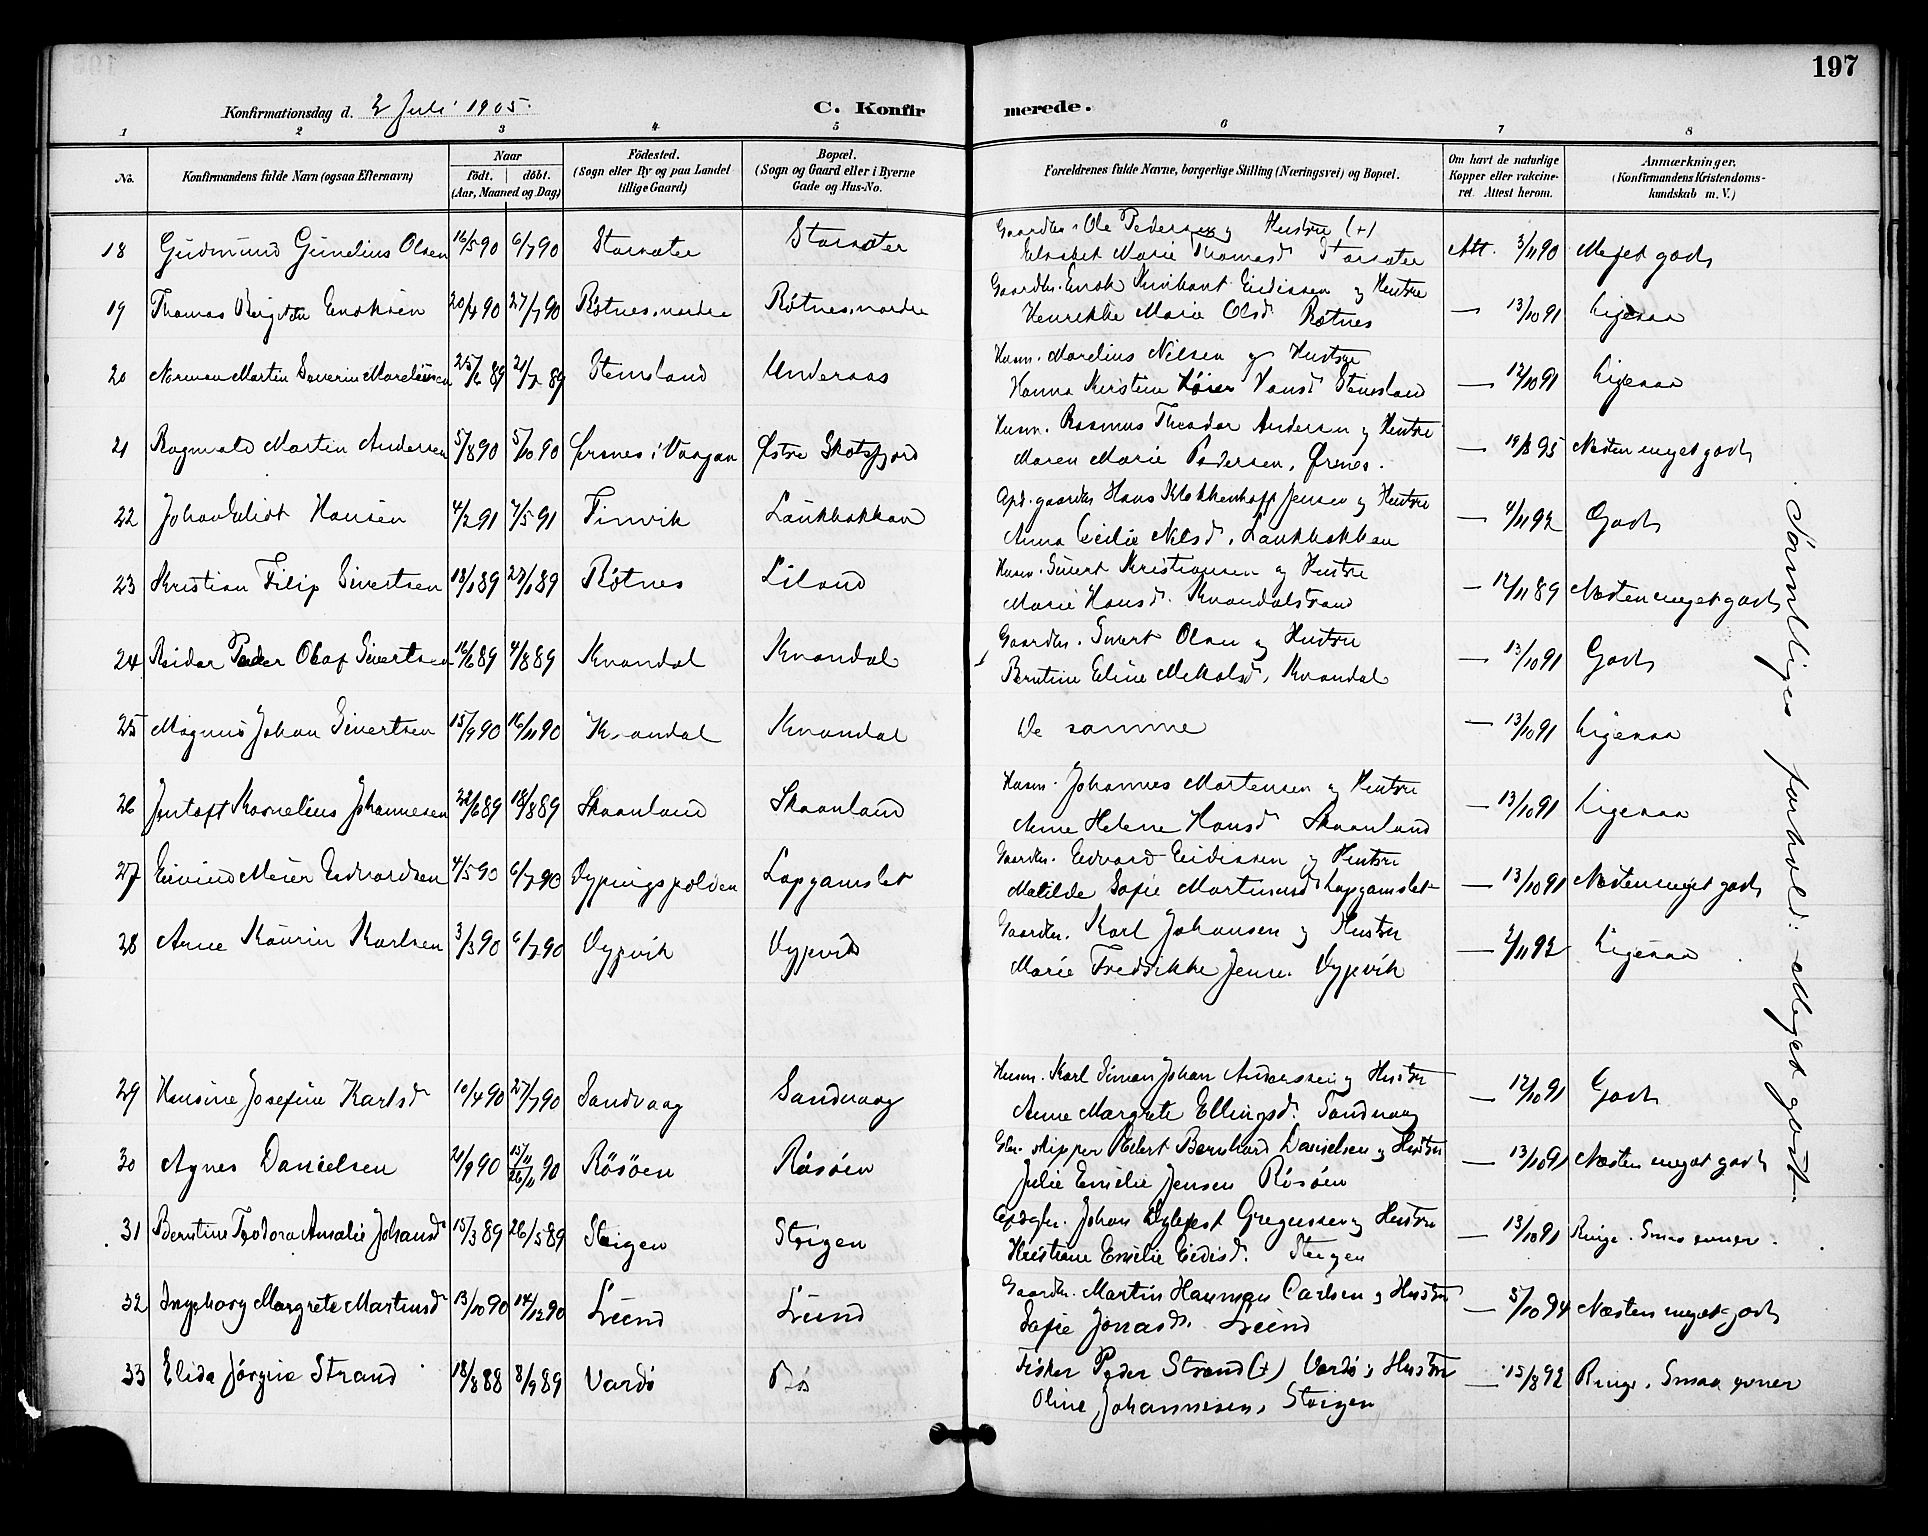 197
Konfirmationsdag d. 2 Juli 1905. C. Konfirmerede.
1 2 3 4 5 6 7 8
No. Konfirmandens fulde Navn (ogsaa Efternavn) Naar födt. döbt. (Aar, Maaned og Dag) Födested. (Sogn eller By og paa Landet tillige Gaard) Bopæl. (Sogn og Gaard eller i Byerne Gade og Hus-No. Forældrenes fulde Navne, borgerlige Stilling (Næringsvei) og Bopæl. Om havt de naturlige Kopper eller vakcineret. Attest herom. Anmærkninger. (Konfirmandens Kristendomskundskab m. V.)
18 Gudmund Gunelius Olsen 16/5 90 6/7 90 Storsæter Storsæter Gaardbr. Ole Pedersen og Hustru (+)
Elisabet Marie Thomasd. Storsæter Att. 3/11 90 Meget godt
19 Thomas Enoksen 20/4 90 27/7 90 Røtnes, nordre Røtnes, nordre Gaardbr. Enok Eidissen og Hustru
Henrikke Marie Olsd. Røtnes — 13/10 91 Ligesaa
20 Norman Martin Severin Mareliussen 25/6 89 21/7 89 Stemsland Underaas Husm. Marelius Nilsen og Hustru
Hanna Kirstine Hansd. Stemsland — 12/10 91 Ligesaa
21 Ragnvald Martin Andersen 5/8 90 5/10 90 Ørsnes i Vaagan Østre Skotsfjord Husm. Rasmus Theodor Andersen og Hustru
Maren Marie Pedersen, Ørnes. — 19/8 95 Næsten meget godt
22 Johan Hansen 4/2 91 7/5 91 Finvik Laukbakkan Opd. gaardbr. Hans Klokkenhoff Jensen og Hustru
Anna Cecilie Nilsd. Laukbakkan — 4/11 92 Godt
23 Kristian Filip Sivertsen 13/1 89 23/1 89 Røtnes Liland Husm. Sivert Kristiansen og Hustru
Marie Hansd. Kvandalstrand — 12/11 89 Næsten meget godt
24 Reidar Peder Olaf Sivertsen 16/6 89 4/8 89 Kvandal Kvandal Gaardbr. Sivert Olsen og Hustru
Berntine Eline Mikalsd., Kvandal — 13/10 91 Godt
25 Magnus Johan Sivertsen 15/9 90 16/11 90 Kvandal Kvandal De samme — 13/10 91 Ligesaa
26 Jentoft Kornelius Johannesen 22/6 89 18/8 89 Skaanland Skaanland Husm. Johannes Martensen og Hustru
Anne Helene Hansd. Skaanland — 13/10 91 Ligesaa
27 Eivind Meier Edvardsen 4/5 90 6/7 90 Dypingspolden Lapgamslet Gaardbr. Edvard Eidissen og Hustru
Matilde Sofie Martinusd. Lapgamslet — 13/10 91 Næsten meget godt
28 Anne Kaurin Karlsen 3/3 90 6/7 90 Dypvik Dypvik Gaardbr. Karl Johansen og Hustru
Marie Fredrikke Jense. Dypvik — 2/11 92 Ligesaa
29 Hansine Josefine Karlsd. 10/4 90 27/7 90 Sandvaag Sandvaag Husm. Karl Simon Johan Anderssen og Hustru
Anne Margrete Ellingsd. Sandvaag — 12/10 91 Godt
30 Agnes Danielsen 21/9 90 15/11 26/11 90 Røsøen Røsøen skipper Bernhard Danielsen og Hustru
Julie Emilie Jensen Røsøen — 13/10 91 Næsten meget godt
31 Berntine Teodora Amalie Johansd. 15/3 89 26/5 89 Steigen Steigen Johan Gregussen og Hustru
Kristiane Emilie Eidisd. Steigen — 13/10 91 Ringe. Smaa evner.
32 Ingeborg Margrete Martinsd. 13/10 90 14/12 90 Leund Leund Gaardbr. Martin Hanman Carlsen og Hustru
Sofie Jonasd. Leund — 5/10 94 Næsten meget godt
33 Elida Jørgine Strand 18/8 88 8/9 89 Vardø Bø Fisker Peder Strand (+) Vardø og Hustru
Oline Johannesen, Steigen — 15/8 92 Ringe, Smaa evner
Samtliges forhold: Meget godt.